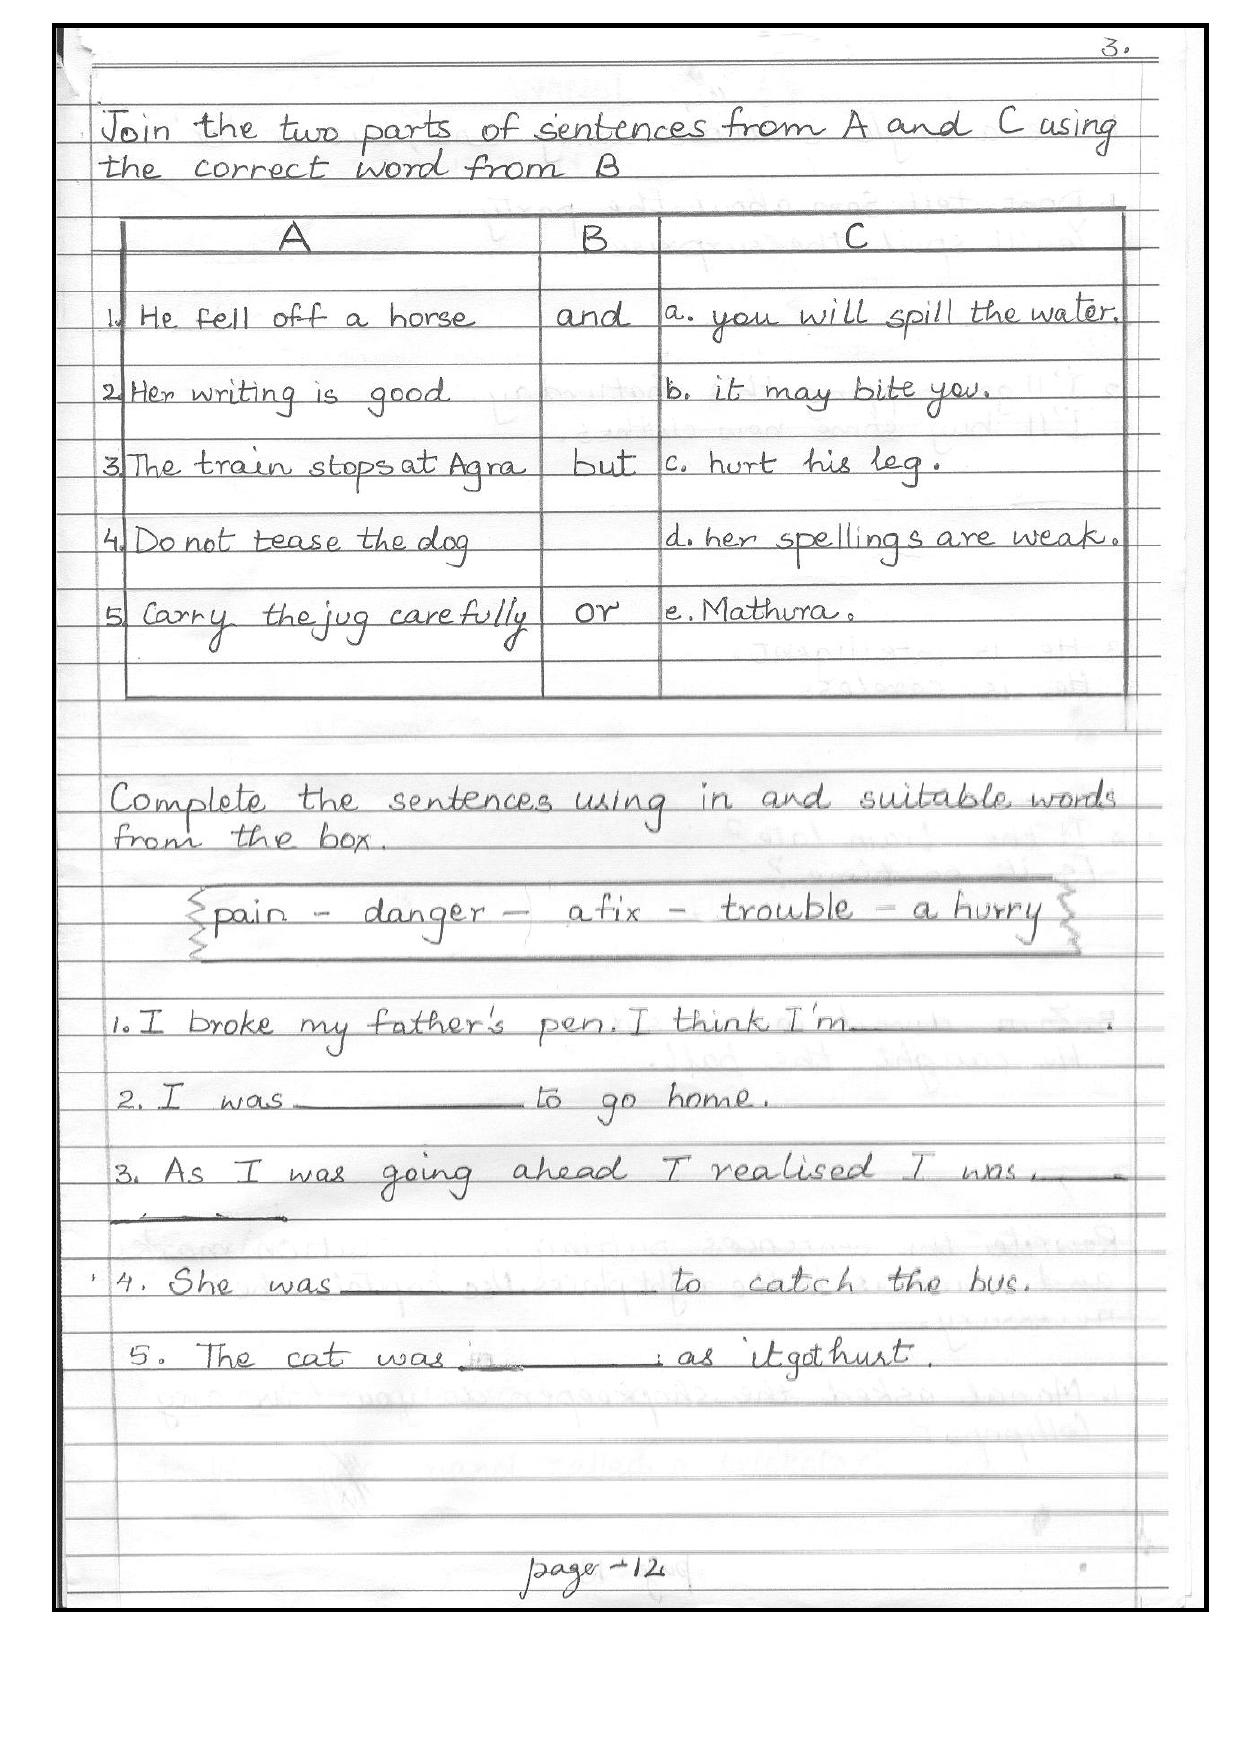 3.
Join the two parts of sentences from A and C using
the correct word from B
A B C
1. He fell off a horse and a. you will spill the water.
2. Her writing is good b. it may bite you.
3. The train stops at Agra but c. hurt his leg.
4. Do not tease the dog d. her spellings are weak.
5. Carry the jug carefully or e. Mathura.
Complete the sentences using in and suitable words
from the box.
pain - danger - a fix - trouble - a hurry
1. I broke my father's pen. I think I'm__________.
2. I was __________ to go home.
3. As I was going ahead I realised I was _____
__________
4. She was __________ to catch the bus.
5. The cat was __________ as it got hurt.
page - 12